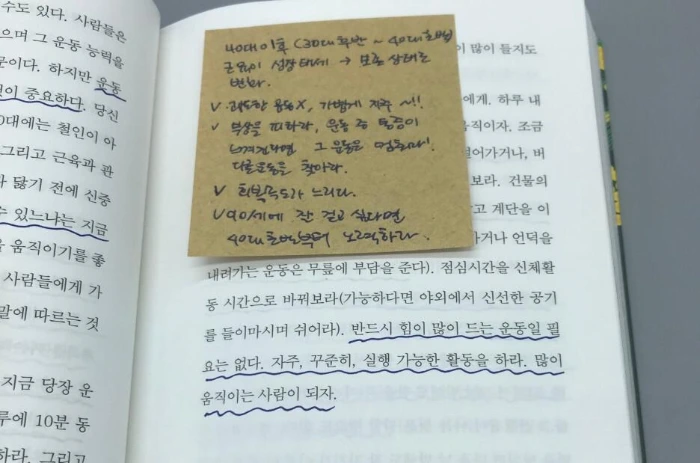 수도 있다. 사람들은
으며 그 운동 능력을
문이다. 하지만 운동
것이 중요하다. 당신
0대에는 철인이 아
그리고 근육과 관
다 닳기 전에 신중
수 있느냐는 지금
을 움직이기를 좋
사람들에게 가
말에 따르는 것
지금 당장 운
루에 10분 동
하라. 그리고
40대 이후 (30대 후반 ~ 40대 초반)
근육이 성장태세 → 보존 상태로
변화.
✓ 과도한 운동X, 가볍게 자주 ~!!
✓ 부상을 피하라, 운동 중 통증이
느껴진다면 그 운동은 멈춰라!
다른운동을 찾아라.
✓ 회복속도가 느리다.
✓ 90세에 잘 걷고 싶다면
40대 초반부터 노력하라.
이 많이 들지도
에게. 하루 내
움직이자. 조금
걸어가거나, 버
보라. 건물의
고 계단을 이
가거나 언덕을
내려가는 운동은 무릎에 부담을 준다). 점심시간을 신체활
동 시간으로 바꿔보라(가능하다면 야외에서 신선한 공기
를 들이마시며 쉬어라). 반드시 힘이 많이 드는 운동일 필
요는 없다. 자주, 꾸준히, 실행 가능한 활동을 하라. 많이
움직이는 사람이 되자.